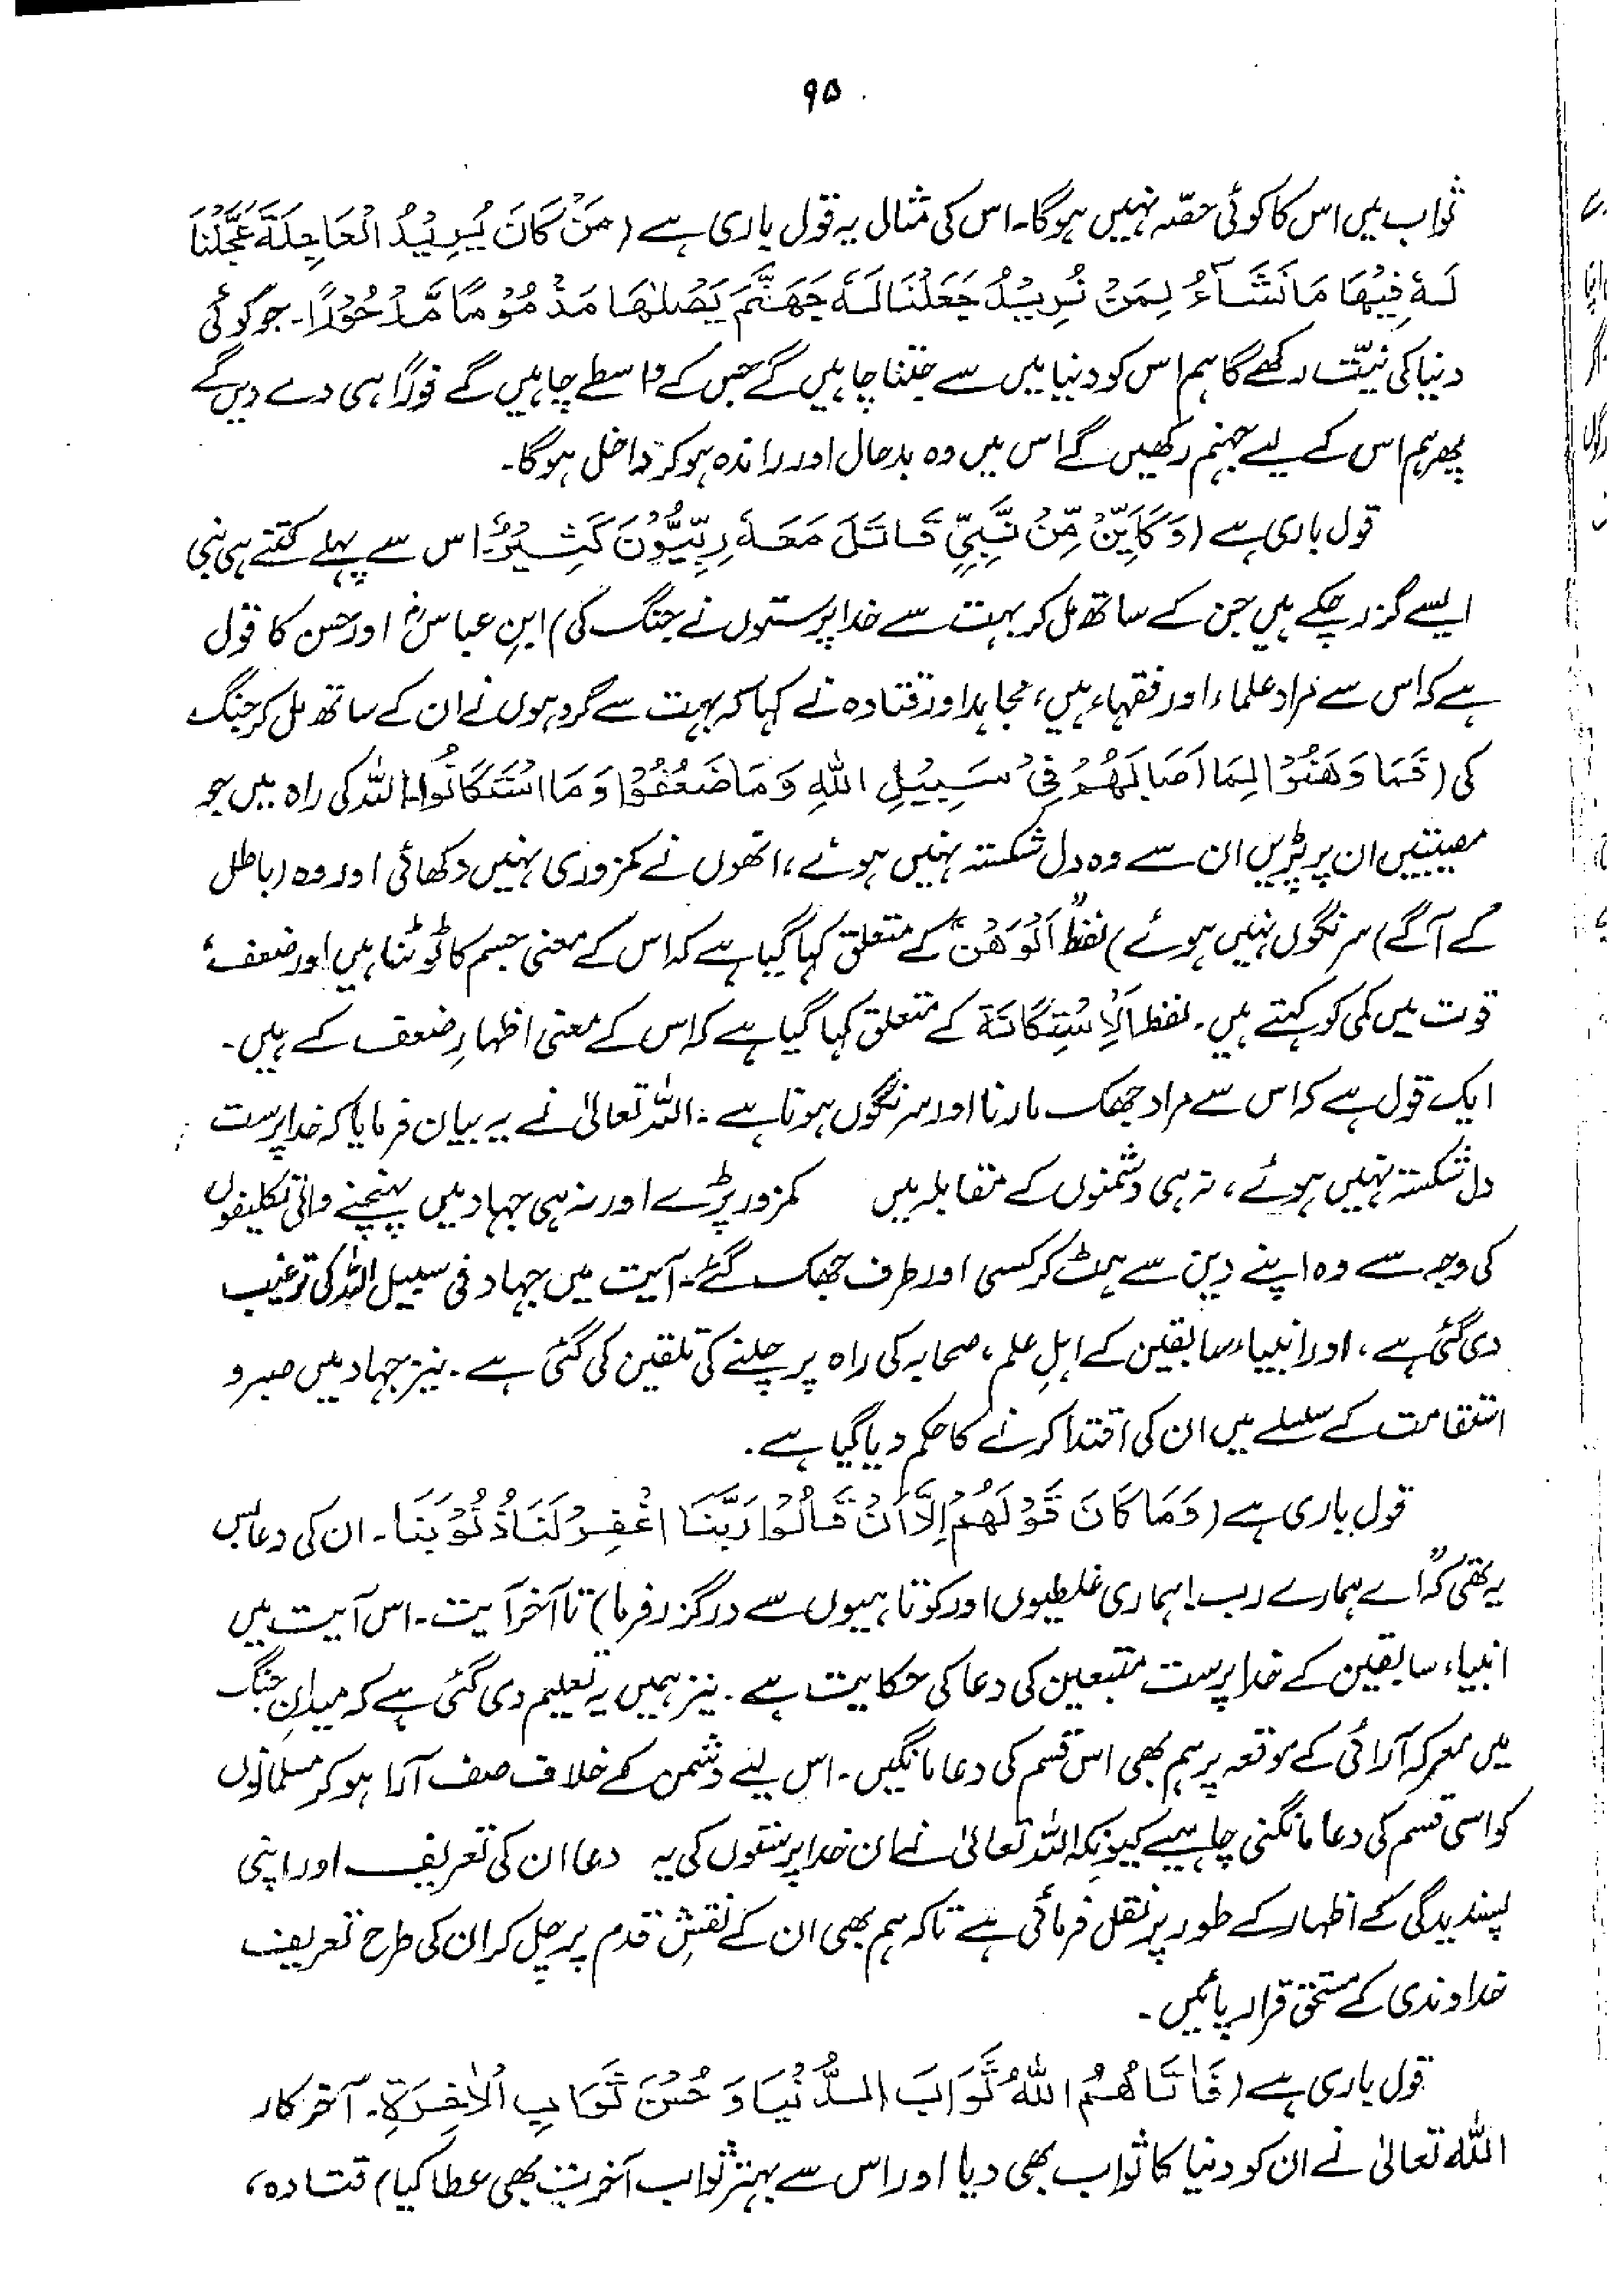 ۹۵
ثواب میں اس کا کوئی حصّہ نہیں ہوگا۔ اس کی مثال یہ قول باری ہے (مَنْ كَانَ يُرِيْدُ الْعَاجِلَةَ عَجَّلْنَا
لَهٗ فِيْهَا مَا نَشَآءُ لِمَنْ نُرِيْدُ جَعَلْنَا لَهٗ جَهَنَّمَ يَصْلٰهَا مَذْمُوْمًا مَّدْحُوْرًا۔ جو کوئی
دنیا کی نیّت رکھے گا ہم اس کو دنیا میں سے جتنا چاہیں گے جس کے واسطے چاہیں گے فوراً ہی دے دیں گے
پھر ہم اس کے لیے جہنم رکھیں گے اس میں وہ بدحال اور راندہ ہوکر داخل ہوگا۔
قول باری ہے (وَكَاَيِّنْ مِّنْ نَّبِيٍّ قَاتَلَ مَعَهٗ رِبِّيُّوْنَ كَثِيْرٌ۔ اس سے پہلے کتنے ہی نبی
ایسے گزر چکے ہیں جن کے ساتھ مل کر بہت سے خدا پرستوں نے جنگ کی) ابنِ عباسؓ اور حسن کا قول
ہے کہ اس سے مراد علماء اور فقہاء ہیں، مجاہد اور قتادہ نے کہا کہ بہت سے گروہوں نے ان کے ساتھ مل کر جنگ
کی (فَمَا وَهَنُوْا لِمَا اَصَابَهُمْ فِيْ سَبِيْلِ اللهِ وَمَا ضَعُفُوْا وَمَا اسْتَكَانُوْا۔ اللہ کی راہ میں جو
مصیبتیں ان پر پڑیں ان سے وہ دل شکستہ نہیں ہوئے، انھوں نے کمزوری نہیں دکھائی اور وہ (باطل
کے آگے) سرنگوں نہیں ہوئے) لفظ "اَلْوَهْنُ" کے متعلق کہا گیا ہے کہ اس کے معنی جسم کا ٹوٹنا ہیں اور ضعف،
قوت میں کمی کو کہتے ہیں۔ لفظ اَلْاِسْتِكَانَة کے متعلق کہا گیا ہے کہ اس کے معنی اظہارِ ضعف کے ہیں۔
ایک قول ہے کہ اس سے مراد جھک مارنا اور سرنگوں ہونا ہے۔ اللہ تعالیٰ نے یہ بیان فرمایا کہ خدا پرست
دل شکستہ نہیں ہوئے، نہ ہی دشمنوں کے مقابلہ میں کمزور پڑے اور نہ ہی جہاد میں پہنچنے والی تکلیفوں
کی وجہ سے وہ اپنے دین سے ہٹ کر کسی اور طرف جھک گئے۔ آیت میں جہاد فی سبیل اللہ کی ترغیب
دی گئی ہے، اور انبیاء سابقین کے اہلِ علم، صحابہ کی راہ پر چلنے کی تلقین کی گئی ہے۔ نیز جہاد میں صبر و
استقامت کے سلسلے میں ان کی اقتدا کرنے کا حکم دیا گیا ہے۔
قول باری ہے (وَمَا كَانَ قَوْلَهُمْ اِلَّا اَنْ قَالُوْا رَبَّنَا اغْفِرْ لَنَا ذُنُوْبَنَا۔ ان کی دعا بس
یہ تھی کہ "اے ہمارے رب! ہماری غلطیوں اور کوتاہیوں سے درگزر فرما) تا آخر آیت۔ اس آیت میں
انبیاء سابقین کے خدا پرست متبعین کی دعا کی حکایت ہے۔ نیز ہمیں یہ تعلیم دی گئی ہے کہ میدانِ جنگ
میں معرکہ آرائی کے موقعہ پر ہم بھی اس قسم کی دعا مانگیں۔ اس لیے دشمن کے خلاف صف آرا ہو کر مسلمانوں
کو اسی قسم کی دعا مانگنی چاہیے کیونکہ اللہ تعالیٰ نے ان خدا پرستوں کی یہ دعا ان کی تعریف اور اپنی
پسندیدگی کے اظہار کے طور پر نقل فرمائی ہے تاکہ ہم بھی ان کے نقشِ قدم پر چل کر ان کی طرح تعریف
خداوندی کے مستحق قرار پائیں۔
قول باری ہے (فَاٰتَاهُمُ اللهُ ثَوَابَ الدُّنْيَا وَحُسْنَ ثَوَابِ الْاٰخِرَةِ۔ آخر کار
اللہ تعالیٰ نے ان کو دنیا کا ثواب بھی دیا اور اس سے بہتر ثواب آخرت بھی عطا کیا) قتادہ،